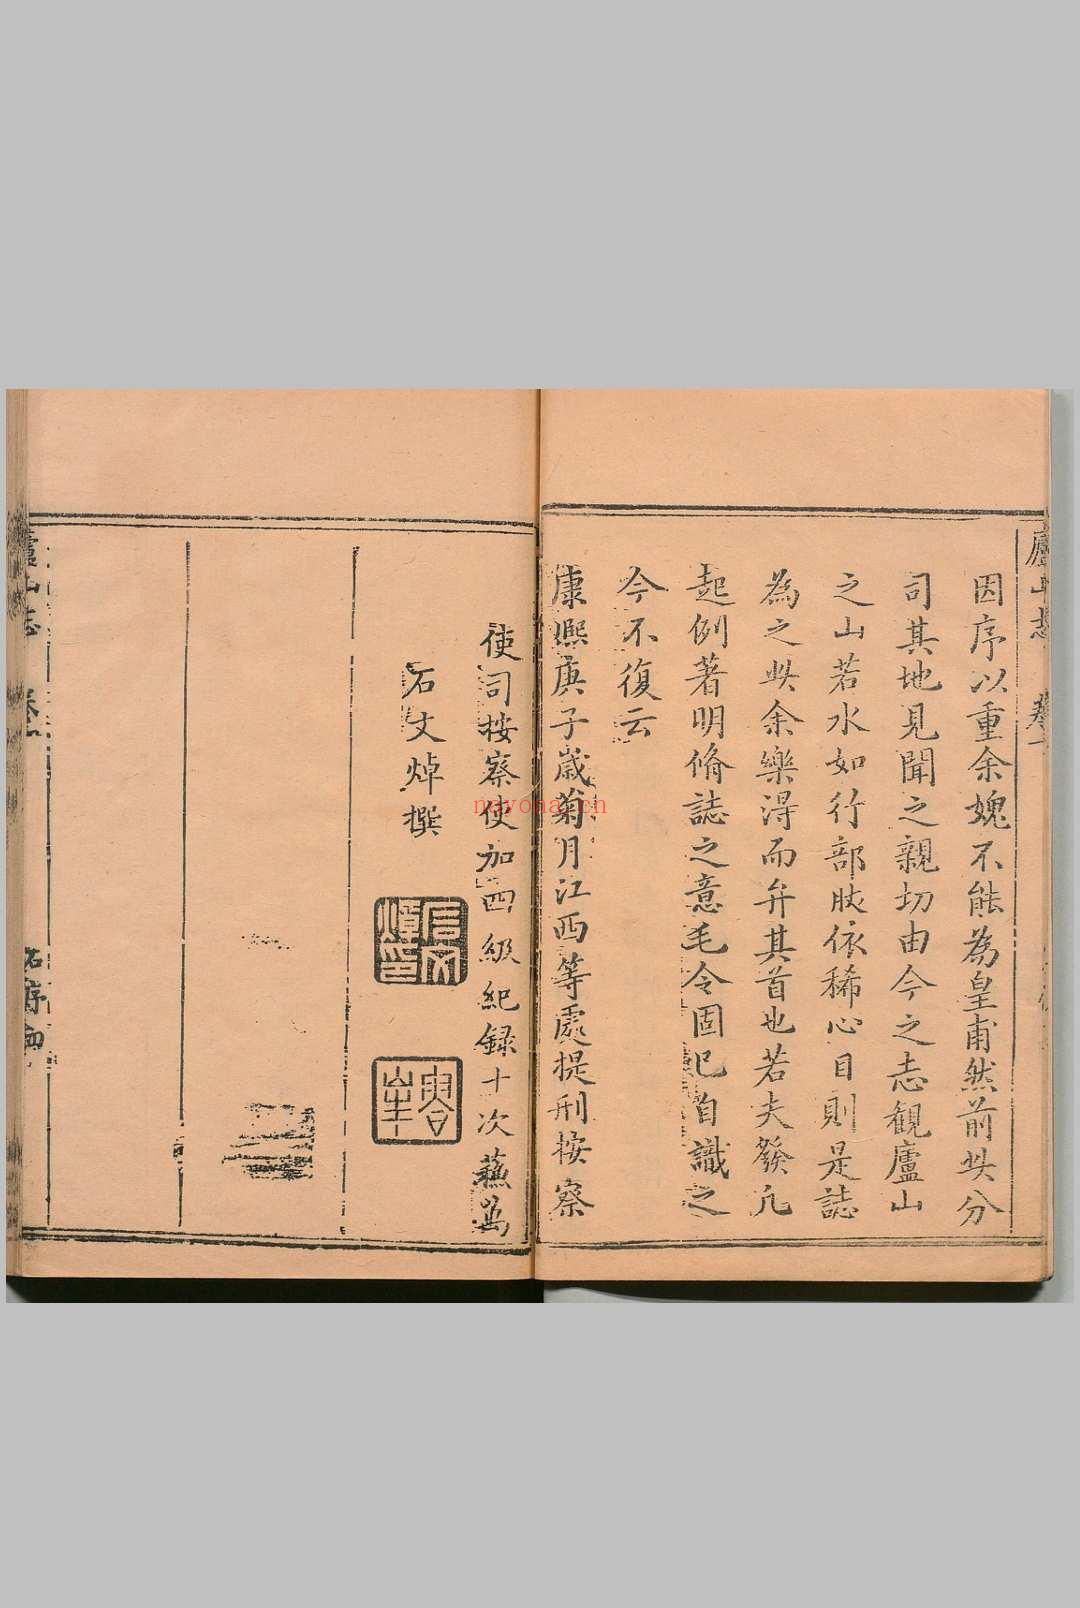 廬山志
因序以重余媿不能為皇甫然前此分
司其地見聞之親切由今之志觀廬山
之山若水如行部時依稀心目則是誌
為之此余樂得而弁其首也若夫發凡
起例著明脩誌之意毛令固已自識之
今不復云
康熙庚子歲菊月江西等處提刑按察
使司按察使加四級紀錄十次
石文焯撰
廬山志
石序
nayona.cn